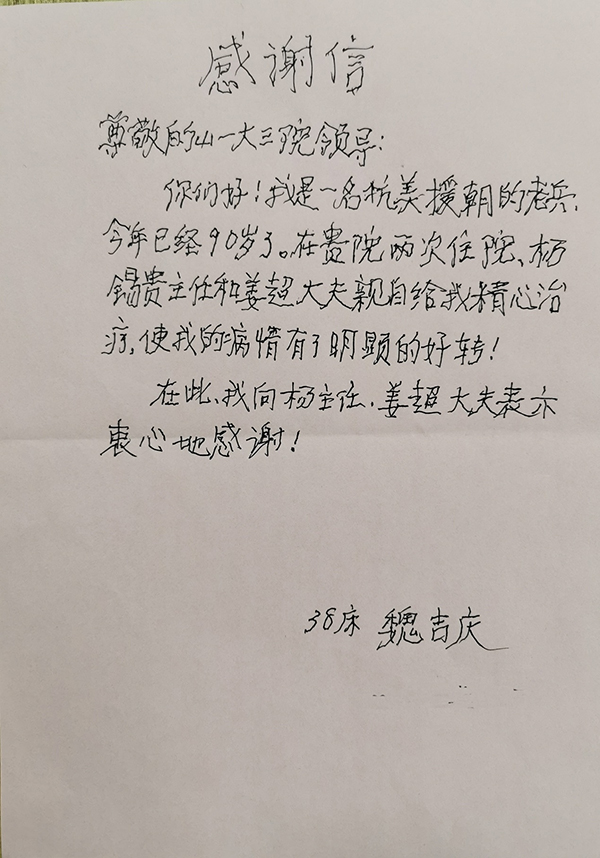 感谢信
尊敬的山一大三院领导：
你们好！我是一名抗美援朝的老兵，
今年已经90岁了。在贵院两次住院、杨
锡贵主任和姜超大夫亲自给我精心治
疗，使我的病情有了明显的好转！
在此、我向杨主任、姜超大夫表示
衷心地感谢！
38床 魏吉庆